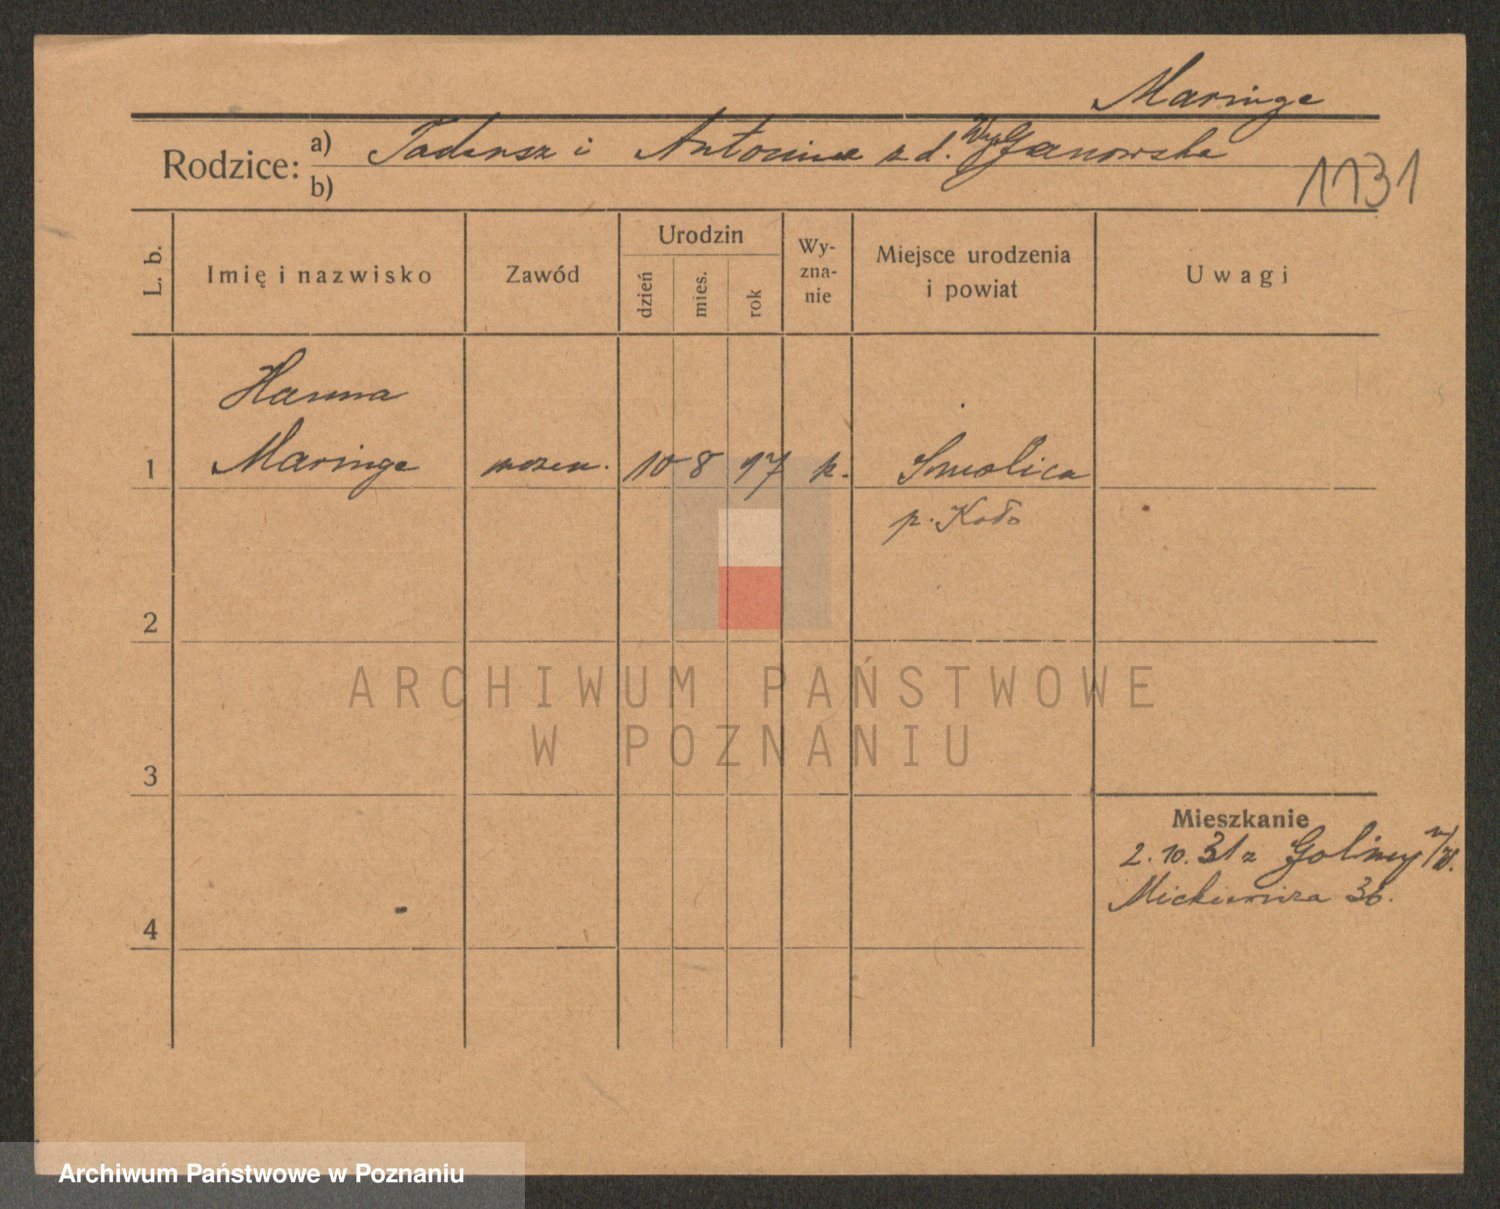 Maringe
Rodzice: a) Tadeusz i Antonina z d.
b)
1131
L. b.
Imię i nazwisko
Zawód
Urodzin
dzień
mies.
rok
Wy-
zna-
nie
Miejsce urodzenia
i powiat
Uwagi
Hanna
1 Maringe 10 8 17 k. Smolica
p. Koło
2
ARCHIWUM PAŃSTWOWE
W POZNANIU
3
Mieszkanie
2. 10. 31 z
Mickiewicza 36.
4
Archiwum Państwowe w Poznaniu